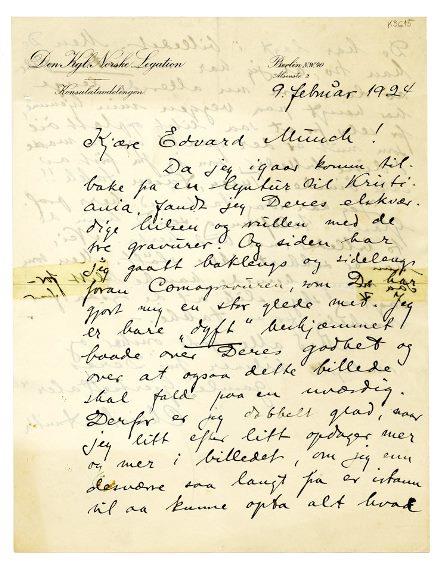 K3615
Den Kgl. Norske Legation
Konsulatavdelingen
Berlin N.W. 40
Alsenstr. 2
9. februar 1924
Kjære Edvard Munch!
Da jeg igaar komm til-
bake fra en lyntur til Kristi-
ania, fandt jeg Deres elskvær-
dige hilsen og rullen med de
tre gravurer. Og siden har
jeg gaatt baklengs og sidelengs
foran Comogravuren, som De har
gjort mig en stor glede med. Jeg
er bare "dyft" beskjæmmet
baade over Deres godhet og
over at ogsaa dette billede
skal fald paa en uværdig.
Derfor er jeg dobbelt glad, naar
jeg litt efter litt opdager mer
og mer i billedet, om jeg enn
desværre saa langt fra er istann
til aa kunne opta alt hvad